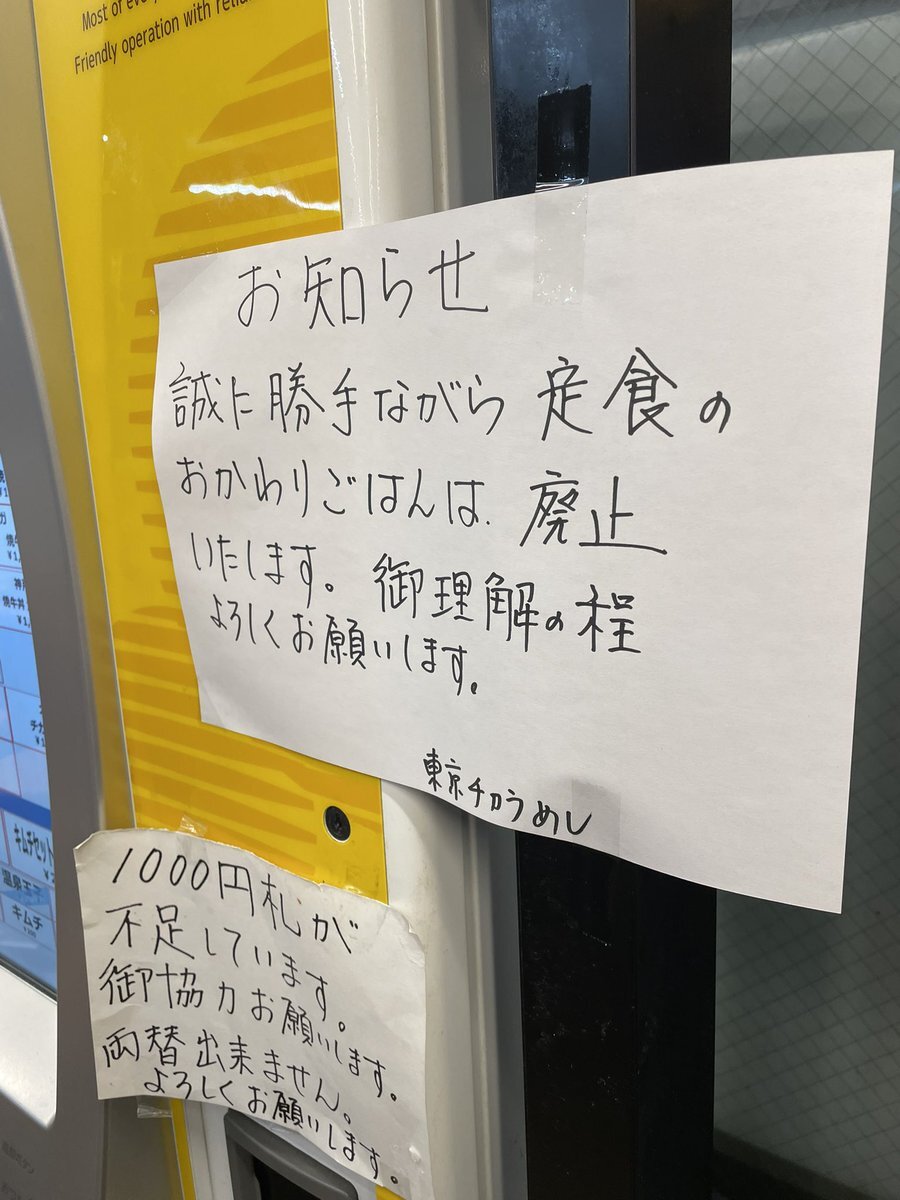 Friendly operation with
お知らせ
誠に勝手ながら定食の
おかわりごはんは、廃止
いたします。御理解の程
よろしくお願いします。
東京チカラめし
キムチセット
キムチ
1000円札が
不足しています。
御協力お願いします。
両替出来ません。
よろしくお願いします。